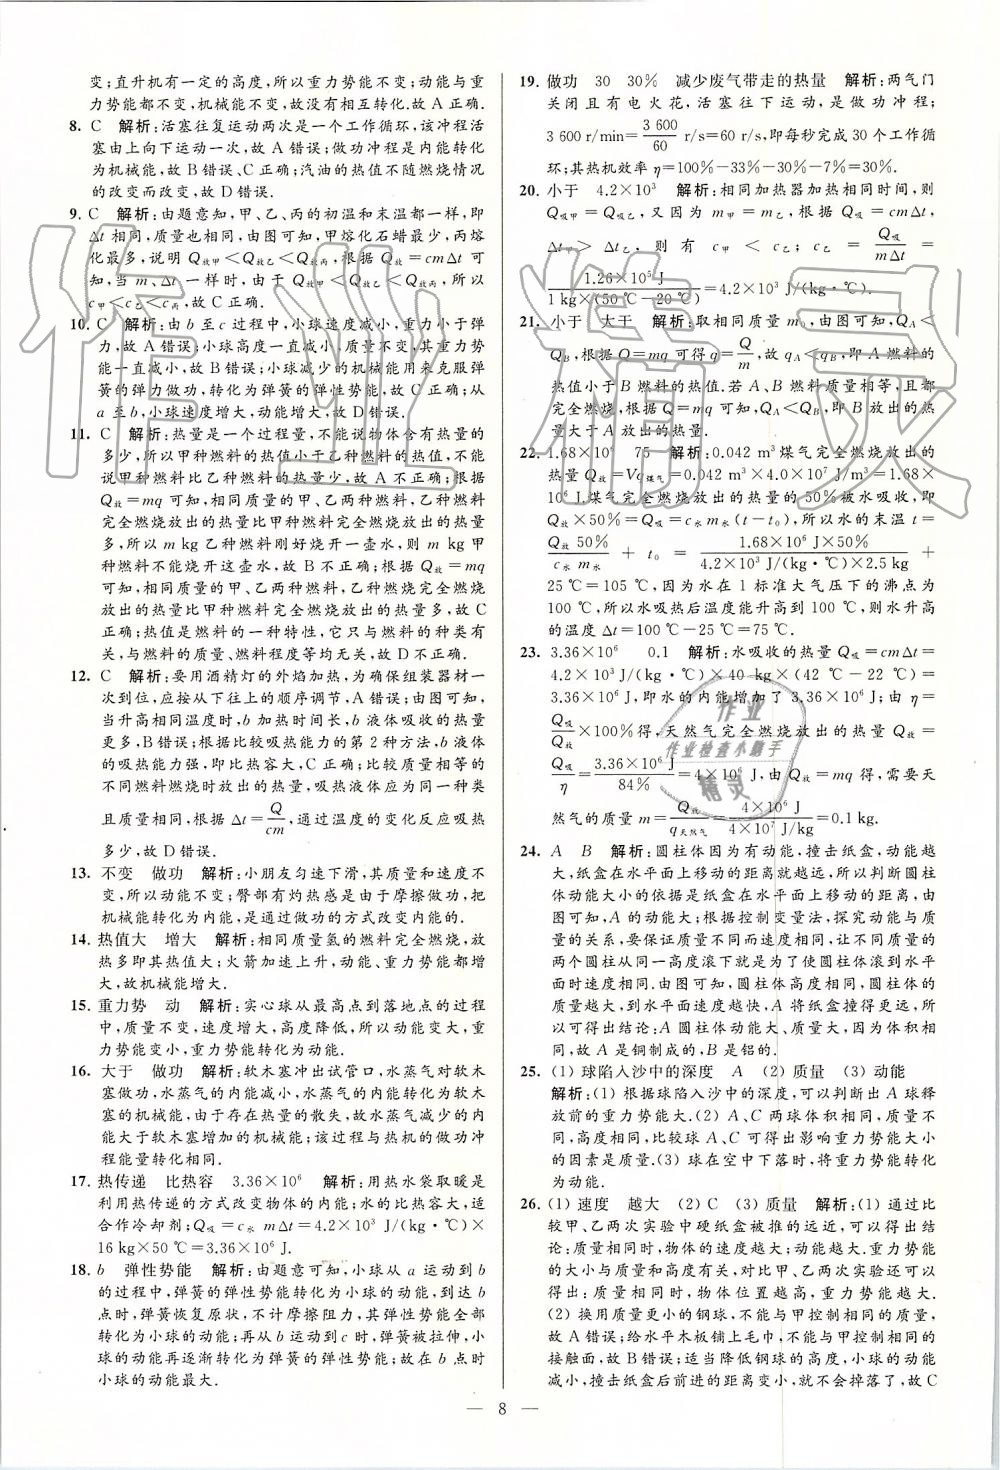 变;直升机有一定的高度,所以重力势能不变;动能与重
力势能都不变,机械能不变,故没有相互转化.故 A 正确.
8. C　解析:活塞往复运动两次是一个工作循环,该冲程活
塞由上向下运动一次,故 A 错误;做功冲程是内能转化
为机械能,故 B 错误、C 正确;汽油的热值不随燃烧情况
的改变而改变,故 D 错误.
9. C　解析:由题意知,甲、乙、丙的初温和末温都一样,即
Δt 相同,质量也相同,由图可知,甲熔化石蜡最少,丙熔
化最多,说明 Q放甲＜Q放乙＜Q放丙,根据 Q=cmΔt 可
知,当 m、Δt 一样时,由于 Q放甲＜Q放乙＜Q放丙,所以
c甲＜c乙＜c丙,故 C 正确.
10. C　解析:由 b 至 c 过程中,小球速度减小,重力小于弹
力,故 A 错误;小球高度一直减小,质量不变,其重力势
能一直减小,故 B 错误;小球减少的机械能用来克服弹
簧的弹力做功,转化为弹簧的弹性势能,故 C 正确;从
a 至 b,小球速度增大,动能增大,故 D 错误.
11. C　解析:热量是一个过程量,不能说物体含有热量的
多少,所以甲种燃料的热值小于乙种燃料的热值,不能
说甲种燃料比乙种燃料的热量多,故 A 不正确;根据
Q放=mq 可知,相同质量的甲、乙两种燃料,乙种燃料
完全燃烧放出的热量比甲种燃料完全燃烧放出的热量
多,所以 m kg 乙种燃料刚好烧开一壶水,则 m kg 甲
种燃料不能烧开这壶水,故 B 不正确;根据 Q放=mq
可知,相同质量的甲、乙两种燃料,乙种燃料完全燃烧
放出的热量比甲种燃料完全燃烧放出的热量多,故 C
正确;热值是燃料的一种特性,它只与燃料的种类有
关,与燃料的质量、燃料程度等均无关,故 D 不正确.
12. C　解析:要用酒精灯的外焰加热,为确保组装器材一
次到位,应按从下往上的顺序调节,A 错误;由图可知,
当升高相同温度时,b 加热时间长,b 液体吸收的热量
更多,B错误;根据比较吸热能力的第 2 种方法,b 液体
的吸热能力强,即比热容大,C 正确;比较质量相等的
不同燃料燃烧时放出的热量,吸热液体应为同一种类
且质量相同,根据 Δt=Q/cm,通过温度的变化反应吸热
多少,故 D 错误.
13. 不变　做功　解析:小朋友匀速下滑,其质量和速度不
变,所以动能不变;臀部有灼热感是由于摩擦做功,把
机械能转化为内能,是通过做功的方式改变内能的.
14. 热值大　增大　解析:相同质量氢的燃料完全燃烧,放
热多即其热值大;火箭加速上升,动能、重力势能都增
大,故机械能增大.
15. 重力势　动　解析:实心球从最高点到落地点的过程
中,质量不变,速度增大,高度降低,所以动能变大,重
力势能变小,重力势能转化为动能.
16. 大于　做功　解析:软木塞冲出试管口,水蒸气对软木
塞做功,水蒸气的内能减小,水蒸气的内能转化为软木
塞的机械能,由于存在热量的散失,故水蒸气减少的内
能大于软木塞增加的机械能;该过程与热机的做功冲
程能量转化相同.
17. 热传递　比热容　3.36×10⁶　解析:用热水袋取暖是
利用热传递的方式改变物体的内能;水的比热容大,适
合作冷却剂;Q吸=c水 mΔt=4.2×10³ J/(kg·℃)×
16 kg×50 ℃=3.36×10⁶ J.
18. b　弹性势能　解析:由题意可知,小球从 a 运动到 b
的过程中,弹簧的弹性势能转化为小球的动能,到达 b
点时,弹簧恢复原状,不计摩擦阻力,其弹性势能全部
转化为小球的动能;再从 b 运动到 c 时,弹簧被拉伸,小
球的动能再逐渐转化为弹簧的弹性势能;故在 b 点时
小球的动能最大.
19. 做功　30　30%　减少废气带走的热量　解析:两气门
关闭且有电火花,活塞往下运动,是做功冲程;
3 600 r/min=3 600/60 r/s=60 r/s,即每秒完成 30 个工作循
环;其热机效率 η=100%－33%－30%－7%=30%.
20. 小于　4.2×10³　解析:相同加热器加热相同时间,则
Q吸甲=Q吸乙,又因为 m甲=m乙,根据 Q吸=cmΔt,
Δt甲＞Δt乙,则有 c甲＜c乙;c乙=Q吸/mΔt=
1.26×10⁵ J/1 kg×(50 ℃－20 ℃)=4.2×10³ J/(kg·℃).
21. 小于　大于　解析:取相同质量 m₀,由图可知,QA＜
QB,根据 Q=mq 可得 q=Q/m,故 qA＜qB,即 A 燃料的
热值小于 B 燃料的热值.若 A、B 燃料质量相等,且都
完全燃烧,根据 Q=mq 可知,QA＜QB,即 B 放出的热
量大于 A 放出的热量.
22. 1.68×10⁶　75　解析:0.042 m³煤气完全燃烧放出的
热量 Q放=Vq煤气=0.042 m³×4.0×10⁷ J/m³=1.68×
10⁶ J,煤气完全燃烧放出的热量的 50%被水吸收,即
Q放×50%=Q吸=c水m水(t－t₀),所以水的末温 t=
Q放50%/c水m水 + t₀ = 1.68×10⁶ J×50%/4.2×10³ J/(kg·℃)×2.5 kg +
25 ℃=105 ℃,因为水在 1 标准大气压下的沸点为
100 ℃,所以水吸热后温度能升高到 100 ℃,则水升高
的温度 Δt=100 ℃－25 ℃=75 ℃.
23. 3.36×10⁶　0.1　解析:水吸收的热量 Q吸=cmΔt=
4.2×10³ J/(kg·℃)×40 kg×(42 ℃－22 ℃)=
3.36×10⁶ J,即水的内能增加了 3.36×10⁶ J;由 η=
Q吸/Q放×100%得,天然气完全燃烧放出的热量 Q放=
Q吸/η=3.36×10⁶ J/84%=4×10⁶ J,由 Q放=mq 得,需要天
然气的质量 m=Q放/q天然气=4×10⁶ J/4×10⁷ J/kg=0.1 kg.
24. A　B　解析:圆柱体因为有动能,撞击纸盒,动能越
大,纸盒在水平面上移动的距离就越远,所以判断圆柱
体动能大小的依据是纸盒在水平面上移动的距离,由
图可知,A 的动能大;根据控制变量法,探究动能与质
量的关系,要保证质量不同而速度相同,让不同质量的
两个圆柱从同一高度滚下就是为了使圆柱体滚到水平
面时速度相同.由图可知,圆柱体高度相同,圆柱体的
质量越大,到水平面速度越快,A 将纸盒撞得更远,所
以可得出结论:A 圆柱体动能大、质量大,因为体积相
同,故 A 是铜制成的,B 是铝的.
25. (1) 球陷入沙中的深度　A　(2) 质量　(3) 动能
解析:(1) 根据球陷入沙中的深度,可以判断出 A 球释
放前的重力势能大.(2) A、C 两球体积相同,质量不
同,高度相同,比较球 A、C 可得出影响重力势能大小
的因素是质量.(3) 球在空中下落时,将重力势能转化
为动能.
26. (1) 速度　越大　(2) C　(3) 质量　解析:(1) 通过比
较甲、乙两次实验中硬纸盒被推的远近,可以得出结
论:质量相同时,物体的速度越大;动能越大.重力势能
的大小与质量和高度有关,对比甲、乙两次实验还可以
得出:质量相同时,物体位置越高,重力势能越大.
(2) 换用质量更小的钢球,不能与甲控制相同的质量,
故 A 错误;给水平木板铺上毛巾,不能与甲控制相同的
接触面,故 B 错误;适当降低钢球的高度,小球的动能
减小,撞击纸盒后前进的距离变小,就不会掉落了,故 C
— 8 —
作业精灵
作业
作业检查小助手
精灵